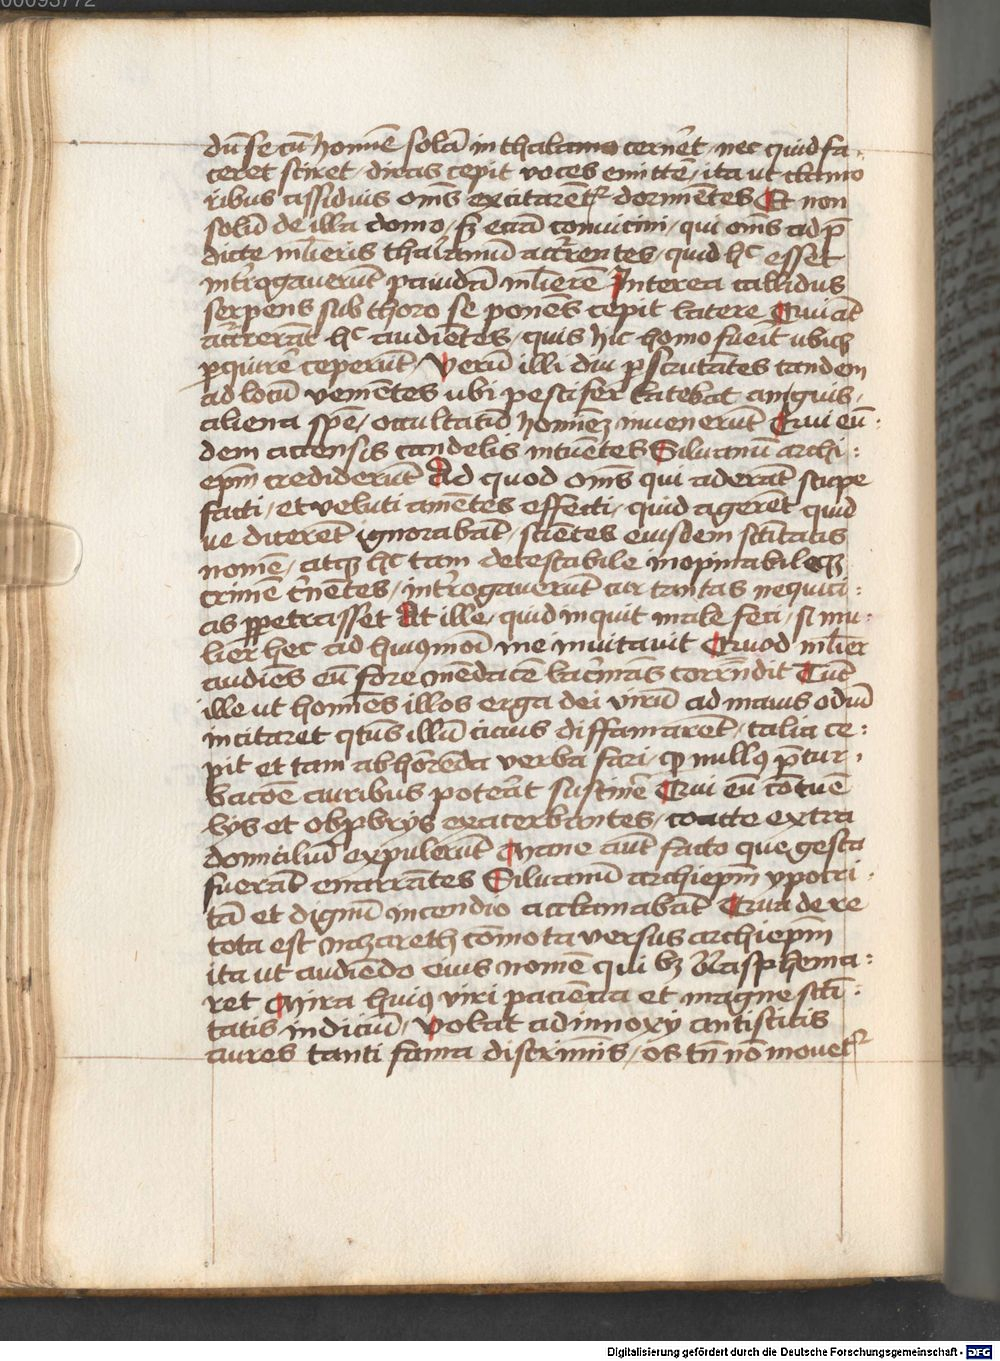 00093772
dū se cū homīe solā in thalamo cern̄et nec quid fa-
ceret sciret / diras cepit voces emittē / ita ut clamo
ribus assiduis om̄s excitarent᷑ dormiētes Et non
solū de illa domo / sꝫ eciā conuicini / qui om̄s ad p̄
dicte ml̄ieris thalamū accr̄rentes / quid hͨ esset
int̄rogauerūt pauidā ml̄ierē Interea callidus
serpens sub thoro se ponens cepit latere Qui āt
accr̄rerāt hͨ audiētes / quis hic homo fuerit ubiqꝫ
ꝑquirē ceperūt / Verū illi diu ꝑscrutātes tandem
ad locū veniētes ubi pestifer latebat anguis /
aliena spē / occultatū hominē inuenerūt Qui eū-
dem accensis candelis intuētes Siluanū archi-
ep̄m crediderūt Ad quod om̄s qui aderāt stupe
facti / et veluti amētes effecti / quid agerēt quid
ue dicerēt ignorabāt / sciētes eiusdem sc̄titatis
nomē / atqꝫ hͨ tam detestabile inopinabileqꝫ
crimē c̄nentes / int̄rogauerūt cur tantas nequici-
as ꝑpetrasset At ille / quid inquit male feci / si mu-
lier hec ad huiꝰmōi me inuitauit Quod ml̄ier
audiēs eū fore mēdacē lac̄mās corrūdit Tūc
ille ut homīes illos erga dei virū ad maius odiū
incitaret qt̄us illū cicius diffamarēt / talia ce-
pit et tam abhorrēda verba fari / qͥ nullꝰ p̄tur-
bacōe auribus poterāt sustinē Qui eū cōtuē
lijs et obprbrijs exacerbantes / coacte extra
domiciliū expulerūt Mane aūt facto que gesta
fuerāt enarrātes Siluanū archiep̄m ypocri-
tā et dignū incendio acclamabāt Qua de re
tota est Nazareth cōmota versus archiep̄m
ita ut audiēdo eius nomē qui lꝫ blasphema-
ret Mira huiꝰ viri paciēcia et magne sc̄ti-
tatis indiciū / Volat ad innoxij antistitis
aures tanti fama discriminis / os tn̄ nō mouet᷑
Digitalisierung gefördert durch die Deutsche Forschungsgemeinschaft - DFG